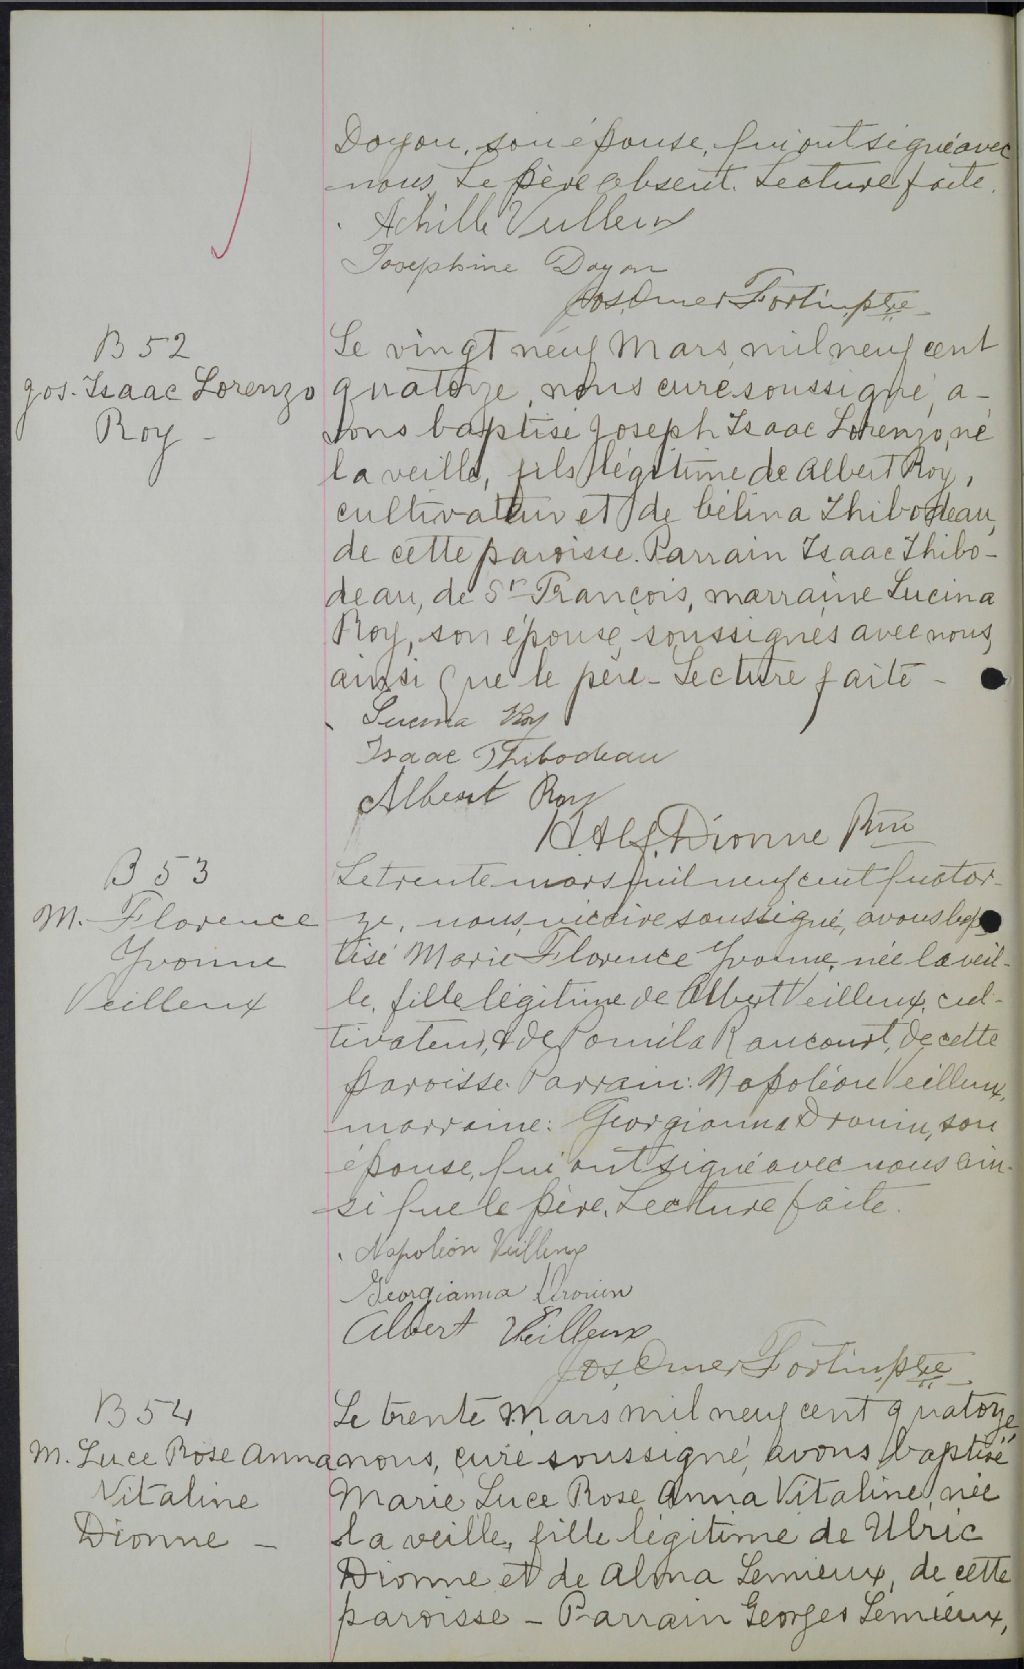 Doyon, son épouse, qui ont signé avec
nous. Le père absent. Lecture faite.
Achille Veilleux
Josephine Doyon
Jos. Omer Fortin, ptre
B 52
Jos. Isaac Lorenzo
Roy -
Le vingt neuf Mars mil neuf cent
quatorze, nous curé soussigné, a-
vons baptisé Joseph Isaac Lorenzo, né
la veille, fils légitime de Albert Roy,
cultivateur et de Célina Thibodeau,
de cette paroisse. Parrain Isaac Thibo-
deau, de St François, marraine Lucina
Roy, son épouse, soussignés avec nous,
ainsi que le père - Lecture faite -
Lucina Roy
Isaac Thibodeau
Albert Roy
Alf. Dionne Ptre
B 53
M. Florence
Yvonne
Veilleux
Le trente mars mil neuf cent quator-
ze, nous, vicaire soussigné, avons bap-
tisé Marie Florence Yvonne, née la veil-
le, fille légitime de Albert Veilleux, cul-
tivateur, & de Poméla Rancourt, de cette
paroisse. Parrain: Napoléon Veilleux,
marraine: Georgianna Drouin, son
épouse, qui ont signé avec nous ain-
si que le père. Lecture faite.
Napoléon Veilleux
Georgianna Drouin
Albert Veilleux
Jos. Omer Fortin, ptre
B 54
M. Luce Rose Anna
Vitaline
Dionne -
Le trente Mars mil neuf cent quatorze,
nous, curé soussigné, avons baptisé
Marie Luce Rose Anna Vitaline, née
la veille, fille légitime de Ulric
Dionne et de Alma Lemieux, de cette
paroisse - Parrain Georges Lemieux,